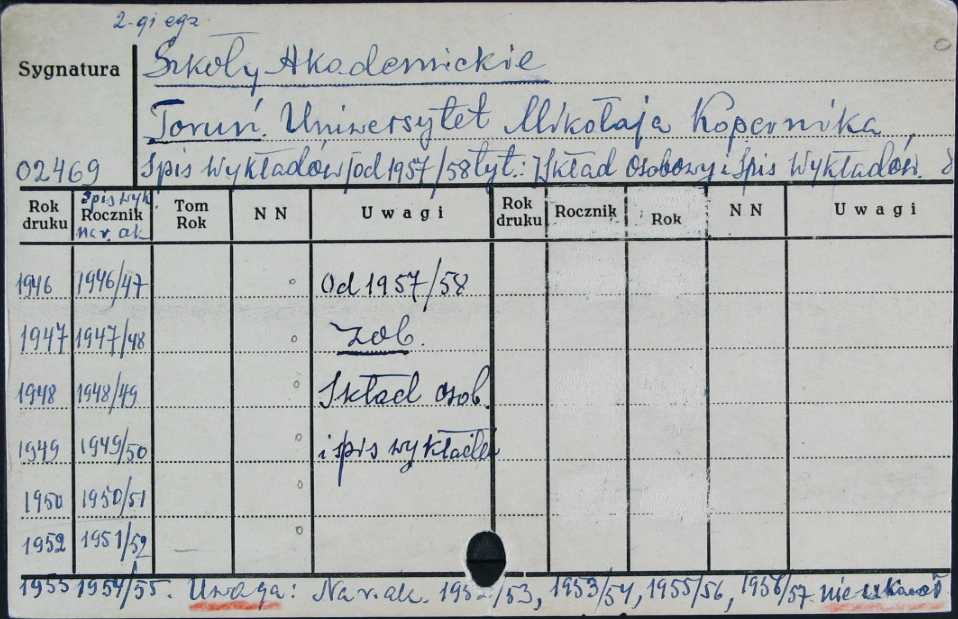 2-gi egz.
Sygnatura
Szkoły Akademickie
Toruń. Uniwersytet Mikołaja Kopernika
02469
Spis Wykładów/od 1957/58 tyt.: Skład Osobowy i Spis Wykładów.
Rok druku
Spis wyk. Rocznik na r. ak.
Tom Rok
N N
Uwagi
Rok druku
Rocznik
Rok
N N
Uwagi
1946 1946/47 Od 1957/58
1947 1947/48 zob.
1948 1948/49 Skład osob.
1949 1949/50 i spis wykładów
1950 1950/51
1952 1951/52
1955 1954/55. Uwaga: Na r. ak. 1952/53, 1953/54, 1955/56, 1956/57 nie